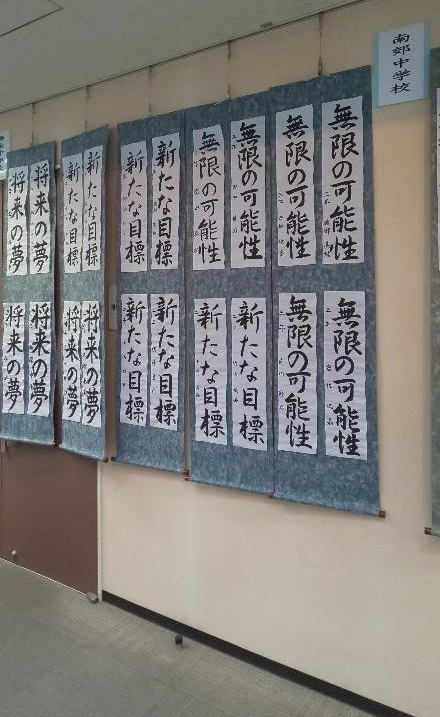 南郊中学校
無限の可能性
無限の可能性
無限の可能性
無限の可能性
無限の可能性
無限の可能性
新たな目標
新たな目標
新たな目標
新たな目標
新たな目標
新たな目標
新たな目標
新たな目標
将来の夢
将来の夢
将来の夢
将来の夢
将来の夢
将来の夢